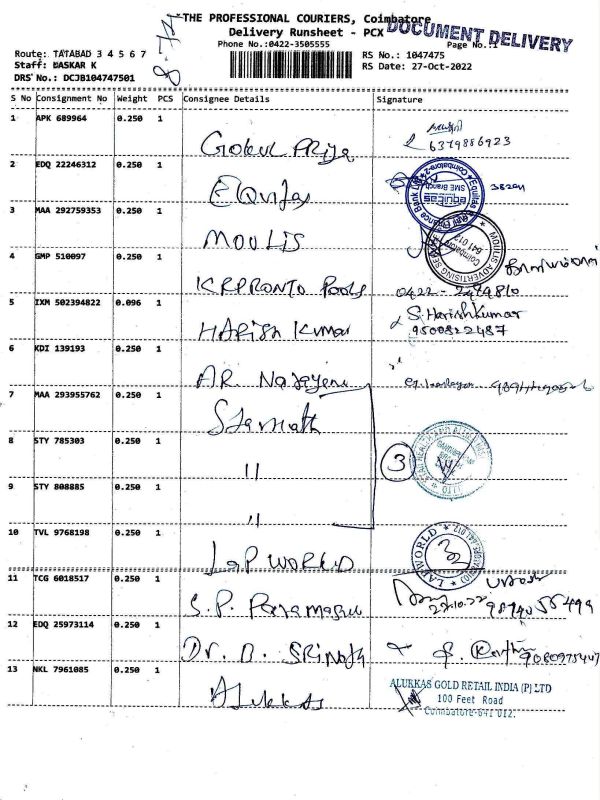 THE PROFESSIONAL COURIERS, Coimbatore
Delivery Runsheet - PCX
DOCUMENT DELIVERY
Phone No.:0422-3505555
Page No.:1
Route: TATABAD 3 4 5 6 7
RS No.: 1047475
Staff: BASKAR K
RS Date: 27-Oct-2022
DRS No.: DCJB104747501
S No Consignment No Weight PCS Consignee Details Signature
1 APK 689964 0.250 1
6379886923
2 EDQ 22246312 0.250 1 EQuitas
3 MAA 292759353 0.250 1 MOULIS
4 GMP 510097 0.250 1
5 IXM 502394822 0.096 1 HARISH Kumar S. Harish Kumar
9500822487
6 KDI 139193 0.250 1 AR. Narayena
7 MAA 293955762 0.250 1
8 STY 785303 0.250 1 "
3
9 STY 808885 0.250 1 "
10 TVL 9768198 0.250 1 LAP WORLD
11 TCG 6018517 0.250 1 S.P.
27.10.22
12 EDQ 25973114 0.250 1 Dr. D. SRINATH
13 NKL 7961085 0.250 1 ALUKKAS
ALUKKAS GOLD RETAIL INDIA (P) LTD
100 Feet Road
Coimbatore-641 012.